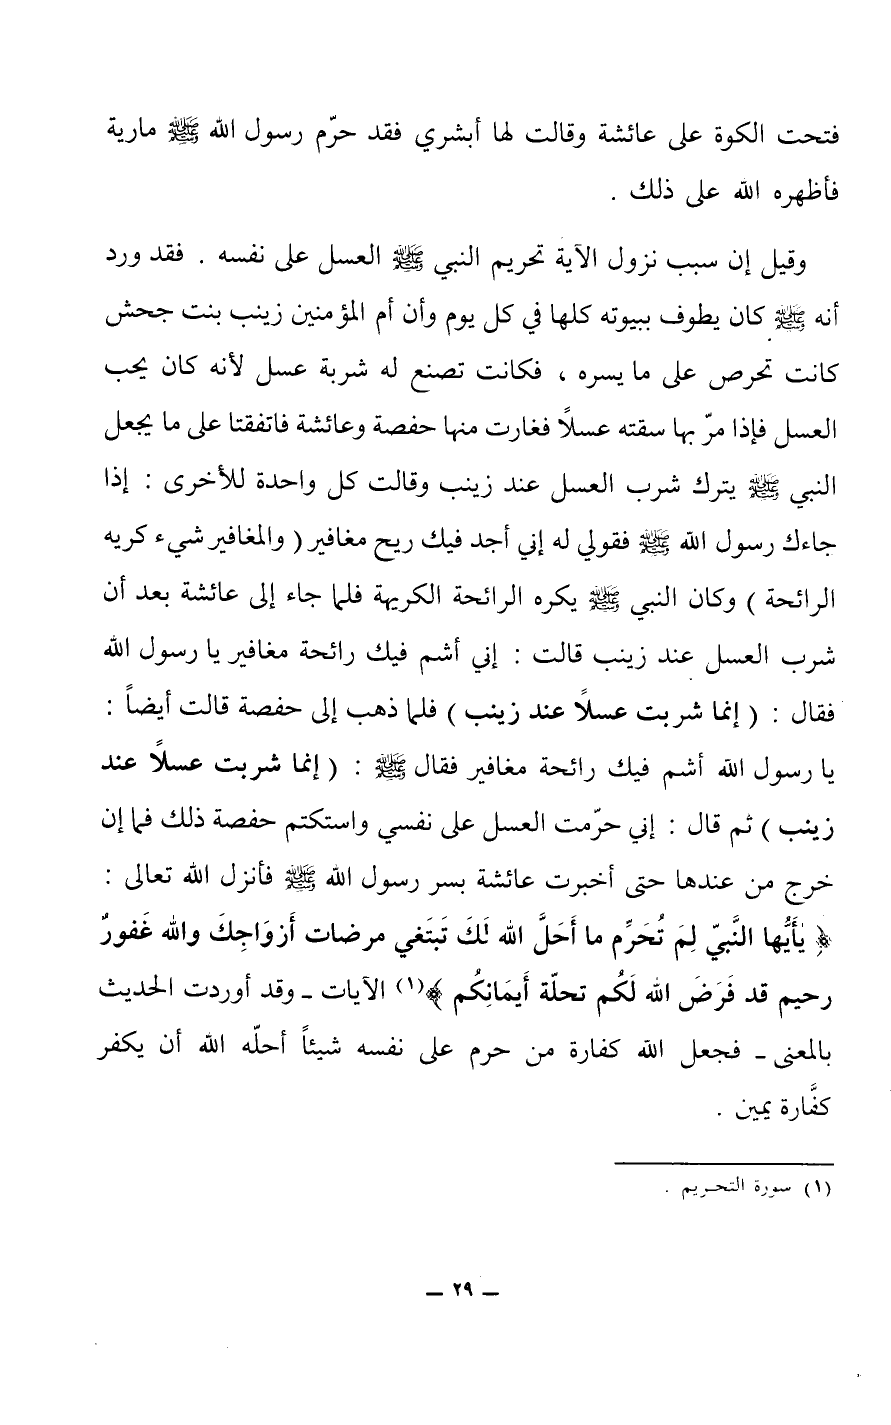 فتحت الكوة على عائشة وقالت لها أبشري فقد حرّم رسول الله ﷺ مارية
فأظهره الله على ذلك .
وقيل إن سبب نزول الآية تحريم النبي ﷺ العسل على نفسه . فقد ورد
أنه ﷺ كان يطوف ببيوته كلها في كل يوم وأن أم المؤمنين زينب بنت جحش
كانت تحرص على ما يسره ، فكانت تصنع له شربة عسل لأنه كان يحب
العسل فإذا مرّ بها سقته عسلاً فغارت منها حفصة وعائشة فاتفقتا على ما يجعل
النبي ﷺ يترك شرب العسل عند زينب وقالت كل واحدة للأخرى : إذا
جاءك رسول الله ﷺ فقولي له إني أجد فيك ريح مغافير ( والمغافير شيء كريه
الرائحة ) وكان النبي ﷺ يكره الرائحة الكريهة فلما جاء إلى عائشة بعد أن
شرب العسل عند زينب قالت : إني أشم فيك رائحة مغافير يا رسول الله
فقال : ( إنما شربت عسلاً عند زينب ) فلما ذهب إلى حفصة قالت أيضاً :
يا رسول الله أشم فيك رائحة مغافير فقال ﷺ : ( إنما شربت عسلاً عند
زينب ) ثم قال : إني حرّمت العسل على نفسي واستكتم حفصة ذلك فما إن
خرج من عندها حتى أخبرت عائشة بسر رسول الله ﷺ فأنزل الله تعالى :
﴿ يٰأَيُّها النَّبيّ لِمَ تُحَرِّم ما أَحَلَّ الله لَكَ تَبتَغي مرضات أَزوَاجِكَ والله غَفورٌ
رحيم قد فَرَضَ الله لَكُم تحلّة أَيمَانِكُم ﴾(١) الآيات ـ وقد أوردت الحديث
بالمعنى ـ فجعل الله كفارة من حرم على نفسه شيئاً أحلّه الله أن يكفر
كفَّارة يمين .
(١) سورة التحريم .
ـ ٢٩ ـ